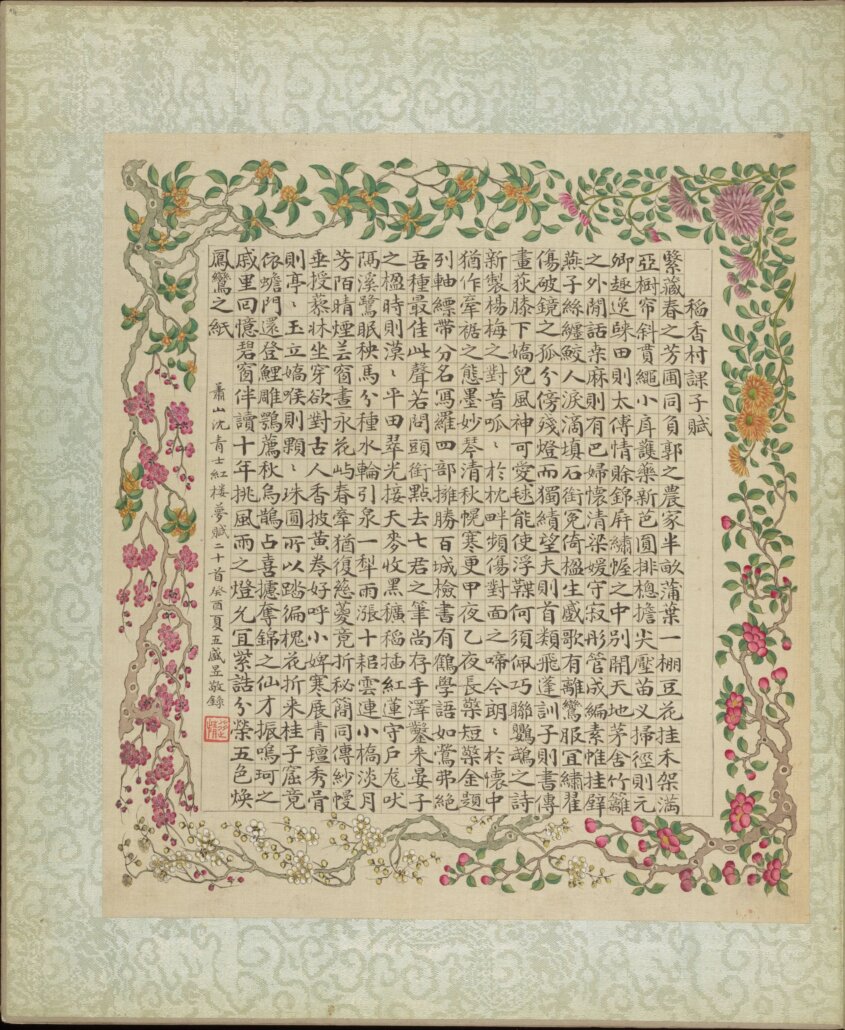 稻香村課子賦
繄藏春之芳圃同負郭之農家半畝蒲葉一棚豆花挂禾架滿
亞樹帘斜貫繩小戽護藥新芭圓排樬擔尖壓苗叉掃徑則元
卿趣逸䟽田則太傅情賒錦屏繡幄之中別開天地茅舍竹籬
之外閒話桒麻則有巴婦懷清梁媛守寂彤管成編素帷挂壁
燕子絲纏鮫人淚滴填石銜冤倚楹生慼歌有離鸞服宜繡翟
傷破鏡之孤分傍殘燈而獨績望夫則首類飛蓬訓子則書傳
畫荻膝下嬌兒風神可愛毬能使浮韘何須佩巧聯鸚鵡之詩
新製楊梅之對昔呱〻於枕畔頻傷對面之啼今朗〻於懷中
猶作牽裾之態墨妙琴清秋幌寒更甲夜乙夜長檠短檠金題
列軸縹帶分名寫羅四部擁勝百城檢書有鶴學語如鶯弗絕
吾種最佳此聲若問頭銜點去七君之筆尚存手澤鑿来晏子
之楹時則漠〻平田翠光接天麥收黑穬稻插紅蓮守戶尨吠
隔溪鷺眠秧馬分種水輪引泉一犁雨漲十耜雲連小橋淡月
芳陌晴煙芸窗晝永花屿春牽猶復慈荾竟折秘簡同傳紗幔
垂授藜牀坐穿欲對古人香披黃卷好呼小婢寒展青氊秀骨
則亭〻玉立嬌喉則顆〻珠圓所以踏徧槐花折来桂子窟竟
依蟾門還登鯉雕鶚薦秋烏鵲占喜攄奪錦之仙才振鳴珂之
戚里回憶碧窗伴讀十年挑風雨之燈允宜紫誥分榮五色煥
鳳鸞之紙
蕭山沈青士紅樓夢賦二十首癸酉夏五盛昱敬錄